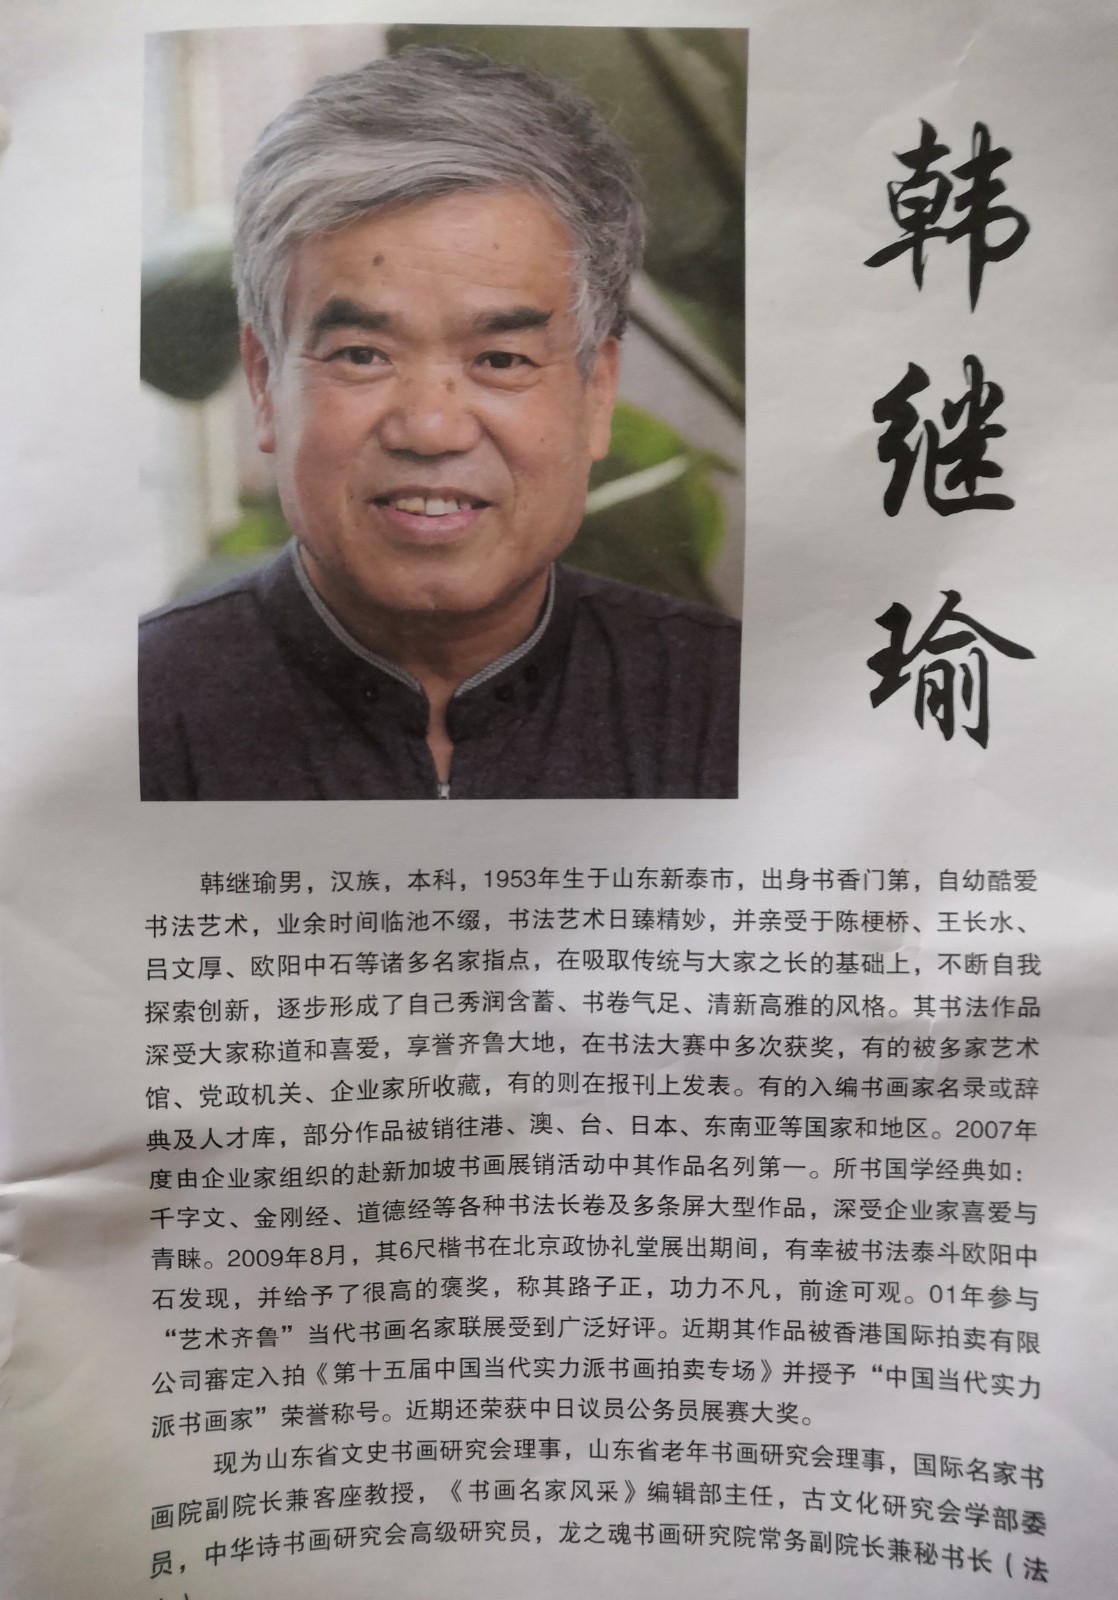 韩继瑜
韩继瑜男，汉族，本科，1953年生于山东新泰市，出身书香门第，自幼酷爱
书法艺术，业余时间临池不缀，书法艺术日臻精妙，并亲受于陈梗桥、王长水、
吕文厚、欧阳中石等诸多名家指点，在吸取传统与大家之长的基础上，不断自我
探索创新，逐步形成了自己秀润含蓄、书卷气足、清新高雅的风格。其书法作品
深受大家称道和喜爱，享誉齐鲁大地，在书法大赛中多次获奖，有的被多家艺术
馆、党政机关、企业家所收藏，有的则在报刊上发表。有的入编书画家名录或辞
典及人才库，部分作品被销往港、澳、台、日本、东南亚等国家和地区。2007年
度由企业家组织的赴新加坡书画展销活动中其作品名列第一。所书国学经典如：
千字文、金刚经、道德经等各种书法长卷及多条屏大型作品，深受企业家喜爱与
青睐。2009年8月，其6尺楷书在北京政协礼堂展出期间，有幸被书法泰斗欧阳中
石发现，并给予了很高的褒奖，称其路子正，功力不凡，前途可观。01年参与
“艺术齐鲁”当代书画名家联展受到广泛好评。近期其作品被香港国际拍卖有限
公司審定入拍《第十五届中国当代实力派书画拍卖专场》并授予“中国当代实力
派书画家”荣誉称号。近期还荣获中日议员公务员展赛大奖。
现为山东省文史书画研究会理事，山东省老年书画研究会理事，国际名家书
画院副院长兼客座教授，《书画名家风采》编辑部主任，古文化研究会学部委
员，中华诗书画研究会高级研究员，龙之魂书画研究院常务副院长兼秘书长（法